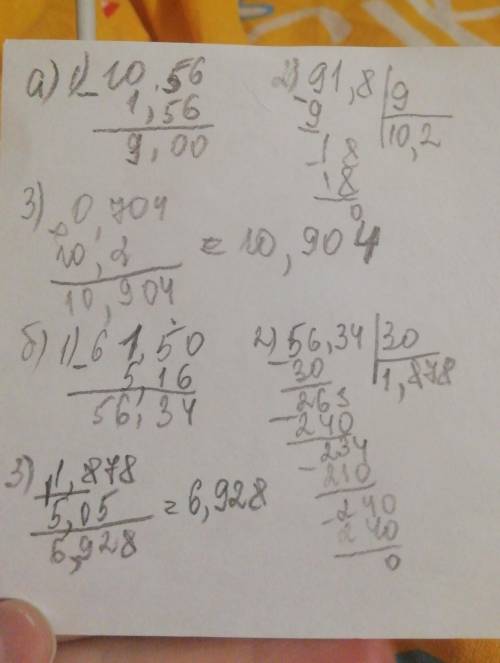 а) 1) - 10,56
1,56
9,00
2) - 91,8 | 9
9 10,2
- 18
18
0
3) + 0,704
10,2 = 10,904
10,904
б) 1) - 61,50
5,16
56,34
2) - 56,34 | 30
30 1,878
263
- 240
234
- 210
- 240
240
0
3) + 1,878
5,05 = 6,928
6,928